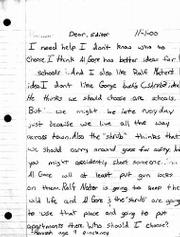 Dear, Editor 11-1-00
I need help I don't know who to
choose. I think Al Gore has better ideas for
schools! And I also like Ralf Nater's
idea. I don't like George bush's (shrub) idea.
He thinks we should choose are schools.
But! we might be late everyday
just because we live all the way
across town. Also the "shrub" thinks that
we should carry around guns for safley but
you might accidently shoot someone.
Al Gore will at least put gun locks
on them. Ralf Nater is going to keep the
wild life and Al Gore & the "shrub" are going
to use that place and going to put
apartments there. Who should I choose?
age 9 pinckney